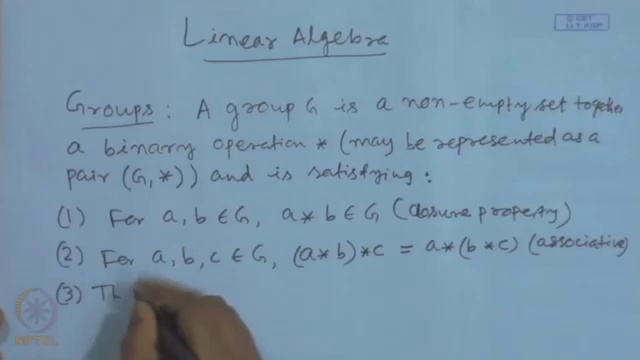 © CET
I.I.T. KGP
Linear Algebra
Groups : A group G is a non-empty set together
a binary operation * (may be represented as a
pair (G, *)) and is satisfying :
(1) For a, b ∈ G, a * b ∈ G (closure property)
(2) For a, b, c ∈ G, (a * b) * c = a * (b * c) (associative)
(3) Th
NPTEL